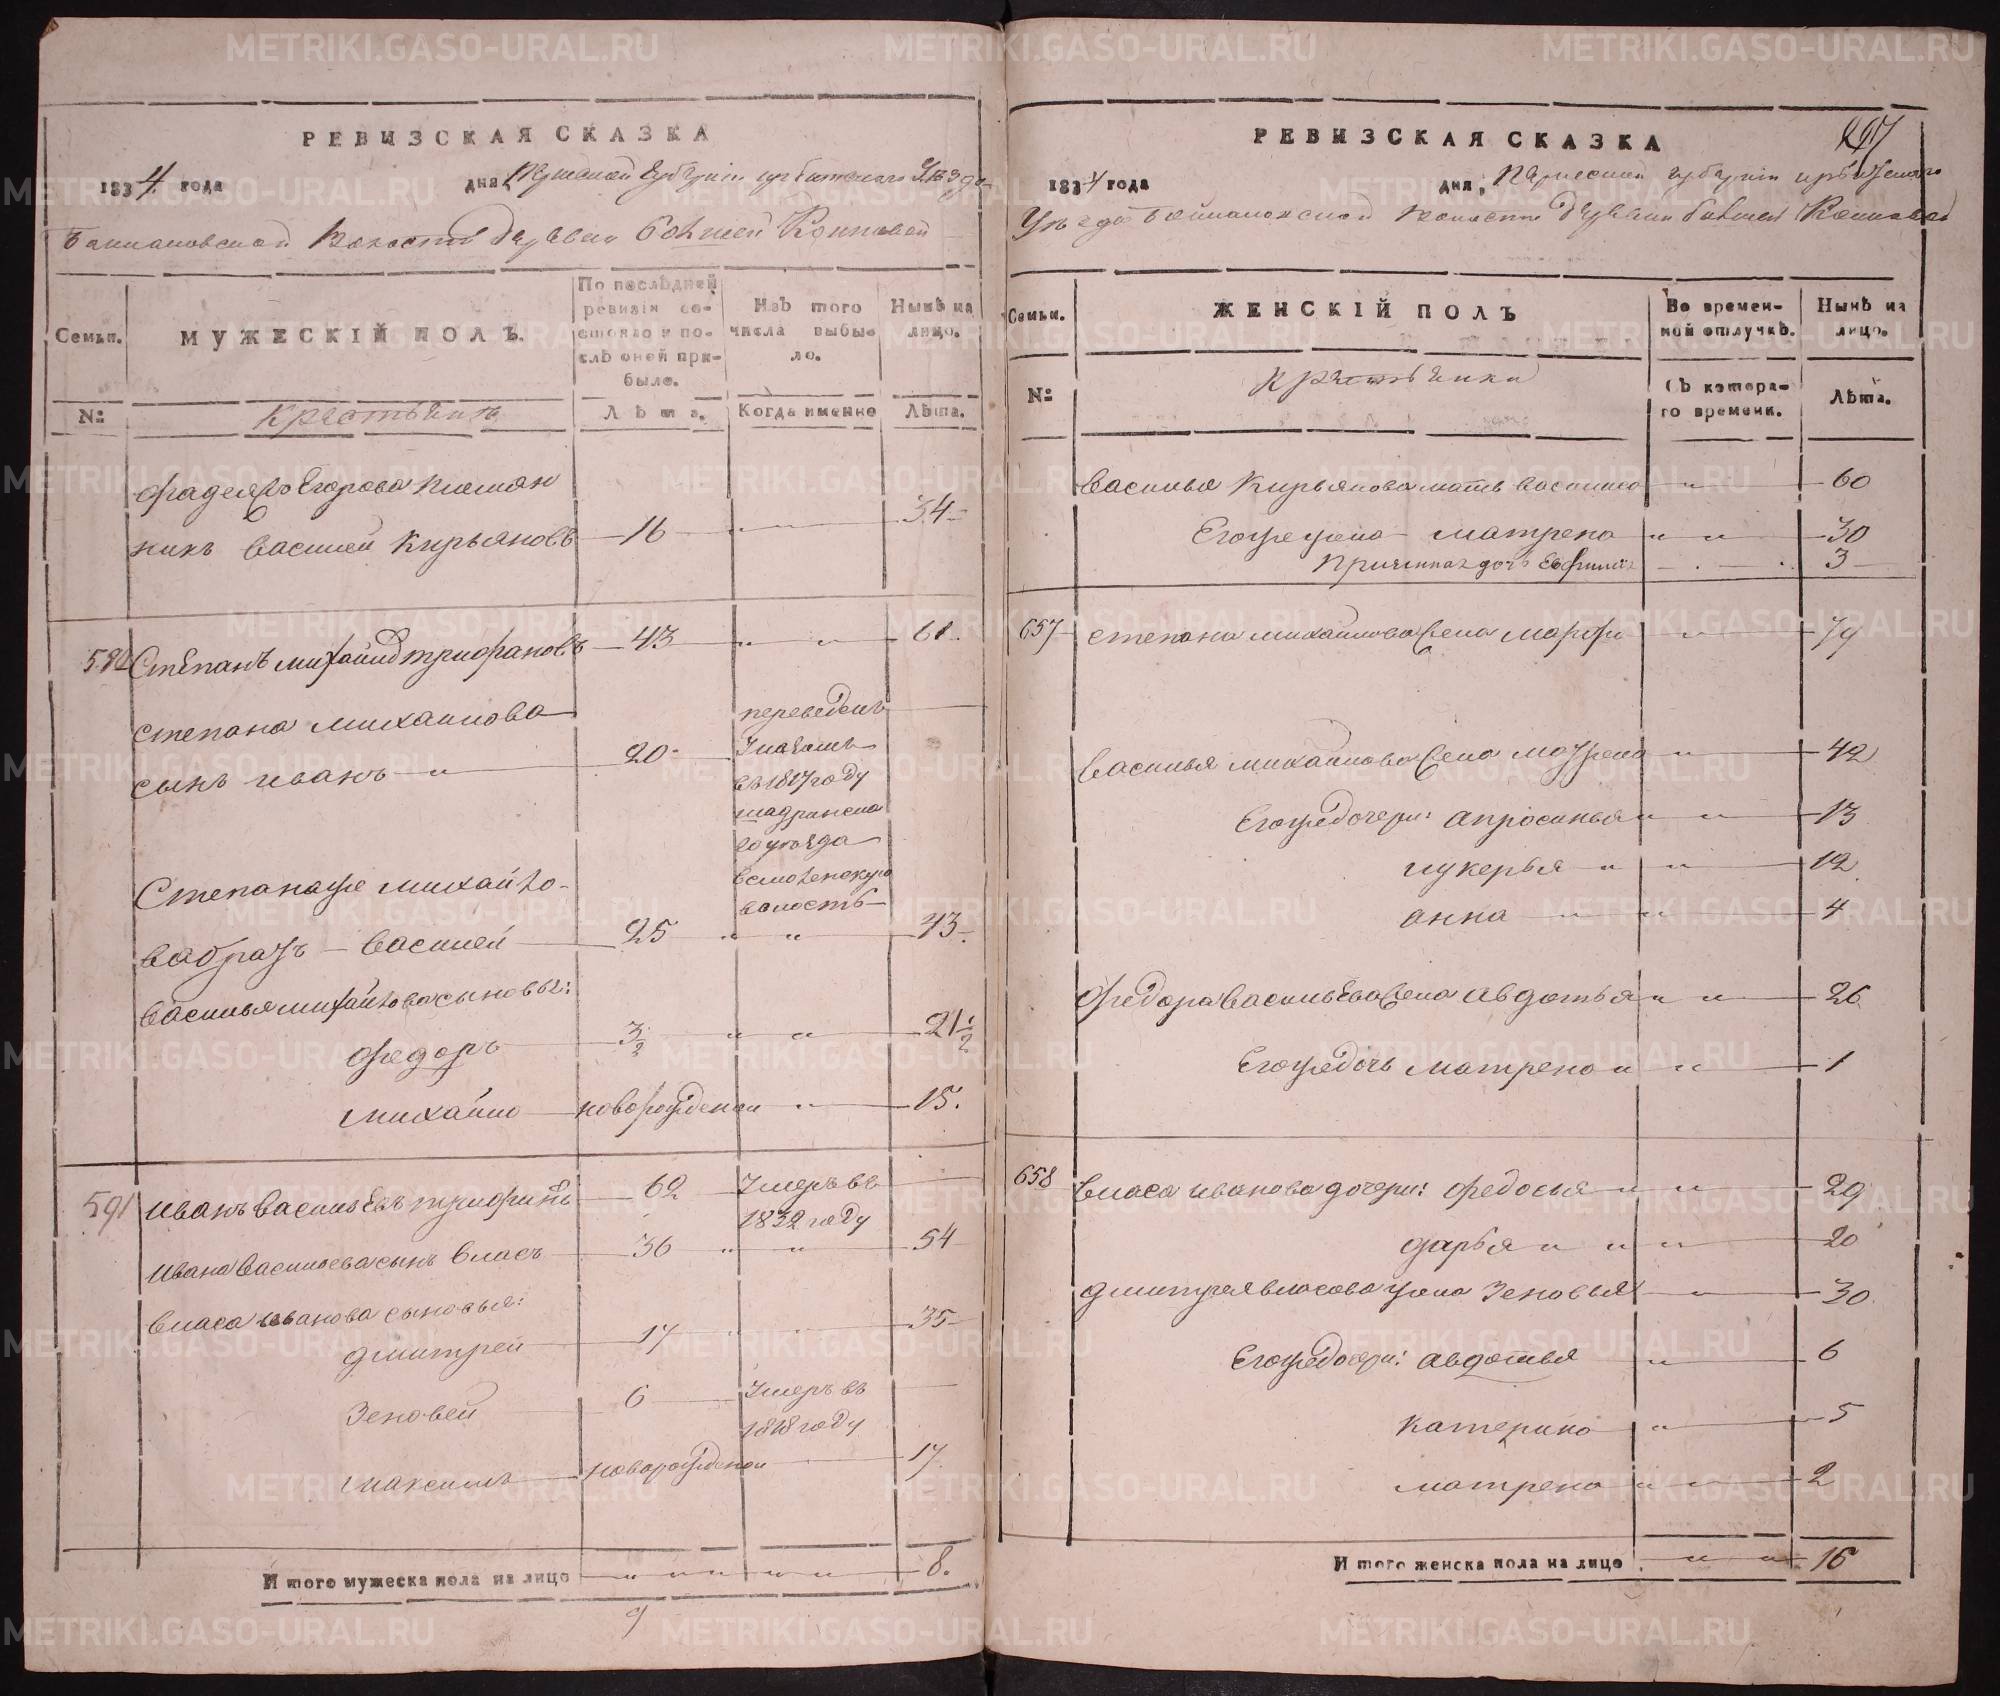 РЕВИЗСКАЯ СКАЗКА
1834 года дня, Пермской Губернии Ирбитского Уезда
Волости Деревни Большей
Семьи.
МУЖЕСКІЙ ПОЛЪ.
По послѣдней ревизіи состояло и послѣ оной прибыло.
Изъ того числа выбыло.
Нынѣ на лицо.
№
Лѣта.
Когда именно
Лѣта.
Фаделея Егорова племян
никъ Василей Кирьяновъ 16 34
Степанъ Михайловъ Трифановъ 43 61
Степана Михаилова
сынъ Иванъ 20
переведенъ
въ 1817 году
шадринска
го уѣзда
волость
Степана же Михайло-
ва братъ Василей 25 43
Василья Михайлова сыновья:
Федоръ 3/2 21 1/2
Михайло новорожденои 15.
591 Иванъ Васильевъ 62 Умеръ въ
1832 году
Ивана Васильева сынъ Власъ 36 54
Власа Иванова сыновья:
Дмитрей 17 35
Зеновей 6 Умеръ въ
1818 году
Максимъ новорожденои 17.
Итого мужеска пола на лицо 8.
9
РЕВИЗСКАЯ СКАЗКА
1834 года дня, Пермской Губернии Ирбитского
Уезда Волости Деревни Большей
Семьи.
ЖЕНСКІЙ ПОЛЪ
Во временной отлучкѣ.
Нынѣ на лицо.
№
Съ котораго времени.
Лѣта.
Василья Кирьянова мать Василиса 60
Его же жена Матрена 30
дочь 3
657 Степана Михайлова жена Марфа 79
Василья Михайлова жена 42
Его же дочери: Апросинья 13
Лукерья 12
Анна 4
Федора Васильева жена Авдотья 26
Его же дочь Матрена 1
658 Власа Иванова дочери: Федосья 29
Дарья 20
Дмитрея Власова жена Зеновья 30
Его же дочери: Авдотья 6
Катерина 5
Матрена 2
Итого женска пола на лицо 16
METRIKI.GASO-URAL.RU